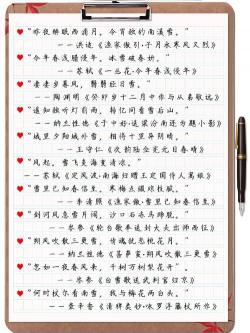 “昨夜醉眠西浦月。今宵独钓南溪雪。”
——洪适《渔家傲引·子月水寒风又烈》
“今年春浅腊侵年。冰雪破春妍。”
——苏轼《一丛花·今年春浅侵年》
“凄凄岁暮风，翳翳经日雪。”
——陶渊明《癸卯岁十二月中作与从弟敬远》
“道和独听灯前雨，转忆同看雪后山。”
——纳兰性德《于中好·送梁汾南还为题小影》
“城里夕阳城外雪，相将十里异阴晴。”
——王守仁《次韵陆佥宪元日春晴》
“风起，雪飞炎海变清凉。”
——苏轼《定风波·南海归赠王定国侍人寓娘》
“雪里已知春信至。寒梅点缀琼枝腻。”
——李清照《渔家傲·雪里已知春信至》
“剑河风急雪片阔，沙口石冻马蹄脱。”
——岑参《轮台歌奉送封大夫出师西征》
“朔风吹散三更雪，倩魂犹恋桃花月。”
——纳兰性德《菩萨蛮·朔风吹散三更雪》
“忽如一夜春风来，千树万树梨花开”。
——岑参《白雪歌送武判官归京》
“何时杖尔看南雪，我与梅花两白头。”
——查辛香《清稗类钞·咏罗浮藤杖所作》